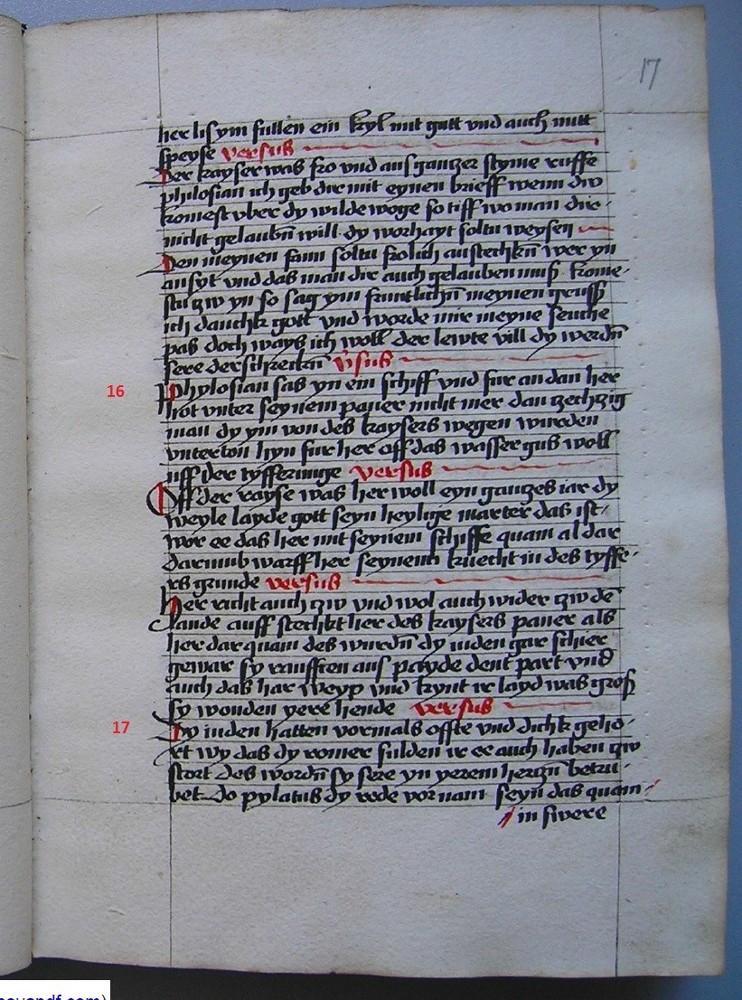 17
her lisym fullen ein kyl mit gutt vnd auch mitt
speyse versus
Der kayser was fro vnd aus ganczer styme ruffe
philosian ich geb dir mit eynen brieff wenn dw
komest vber dy wilde woge so tiff wo man dir
nicht gelaubn̄ will dy worhayt soltu weysen
Den meynen fann soltu frolich austeckn̄ wer yn
ansyt vnd das man dir auch gelauben mus kome
stu zw yn so sag ym fruntlichn̄ meynen gruss
ich danckt gott vnd worde mir meyne seuche
pas doch ways ich woll der lewte vill dy werdn̄
sere derschrecken v̄sus
16
Phylosian sas yn ein schiff vnd fur an dan her
hot vnter seynem paner nicht mer dan zechzig
man dy ym von des kaysers wegen wurden
vnterton hyn fur her off das wasser gus woll
uff der tyffe
versus
Off der rayse was her woll eyn ganczes iar dy
weyle layde gott seyn heylige marter das ist
wor ee das her mit seynem schiffe quam al dar
darumb warff her seynenn knecht in des tyffe
rs grunde versus
her richt auch zw vnd wol auch wider zw de
lande auff steckt her des kaysers paner als
her dar quam des wurdn̄ dy iuden gar schier
gewar sy raufften aus payde dent part vnd
auch das har weyp vnd kynt ir layd was gros
sy wonden yere hende versus
17
Dy iuden hatten vormals offte vnd dickt geho
rt wy das dy romer sulden ir ee auch haben zw
stort des wordn̄ sy sere yn yerem herczn̄ betru
bet do pylatus dy rede vornam seyn̄ das quam
in swere